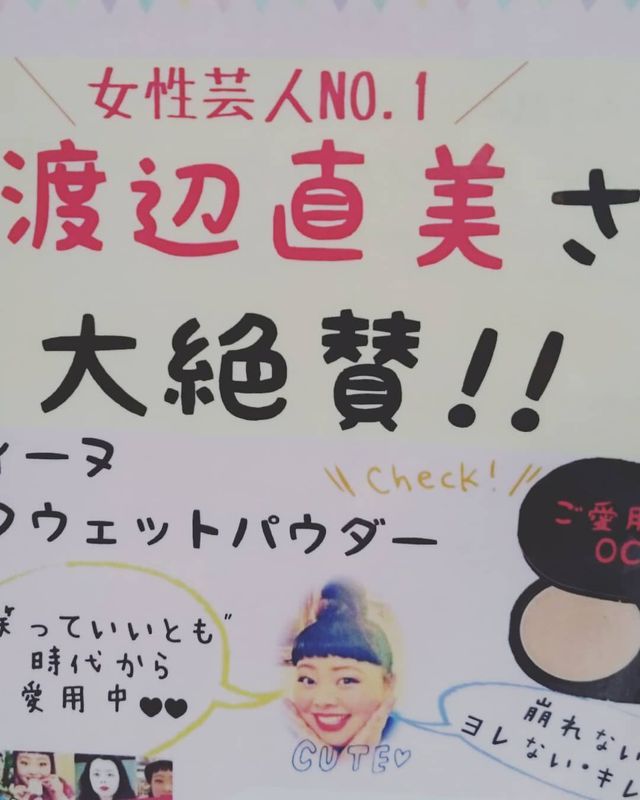 女性芸人NO.1
渡辺直美さ
大絶賛!!
ィーヌ
ウェットパウダー
Check!
ご愛用
OC
笑っていいとも"
時代から
愛用中♥♥
CUTE♡
崩れない
ヨレない・キレ